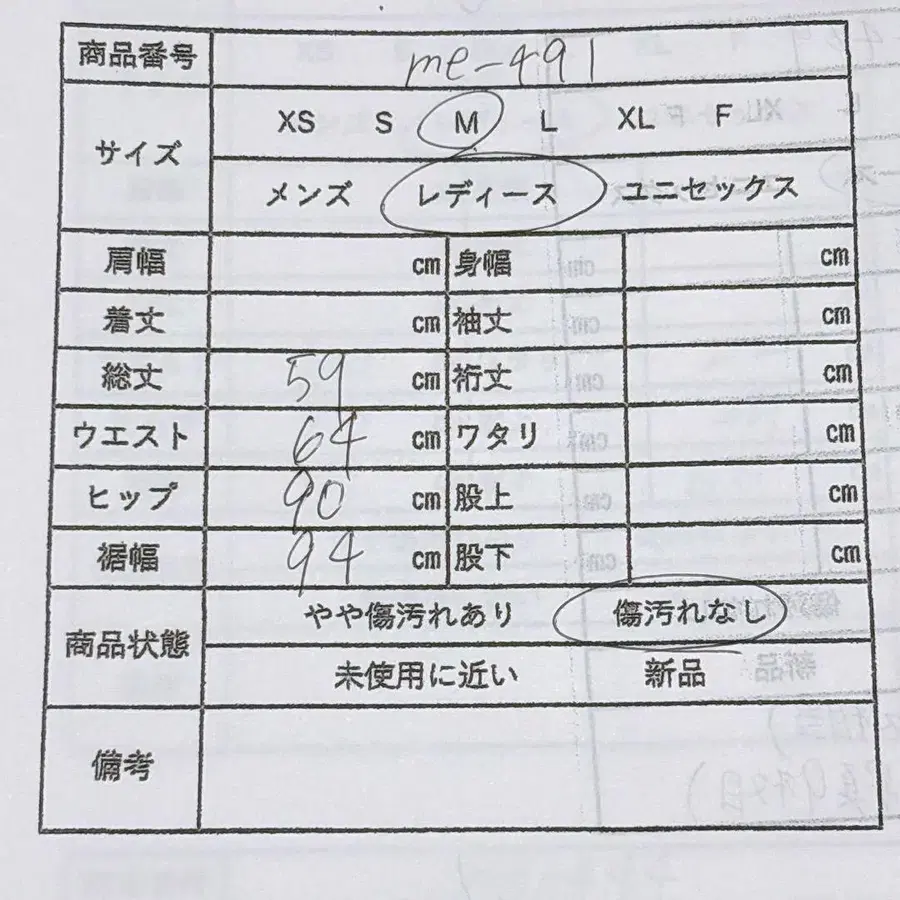 商品番号 me-491
サイズ XS S M L XL F
メンズ レディース ユニセックス
肩幅 cm 身幅 cm
着丈 cm 袖丈 cm
総丈 59 cm 裄丈 cm
ウエスト 64 cm ワタリ cm
ヒップ 90 cm 股上 cm
裾幅 94 cm 股下 cm
商品状態 やや傷汚れあり 傷汚れなし
未使用に近い 新品
備考